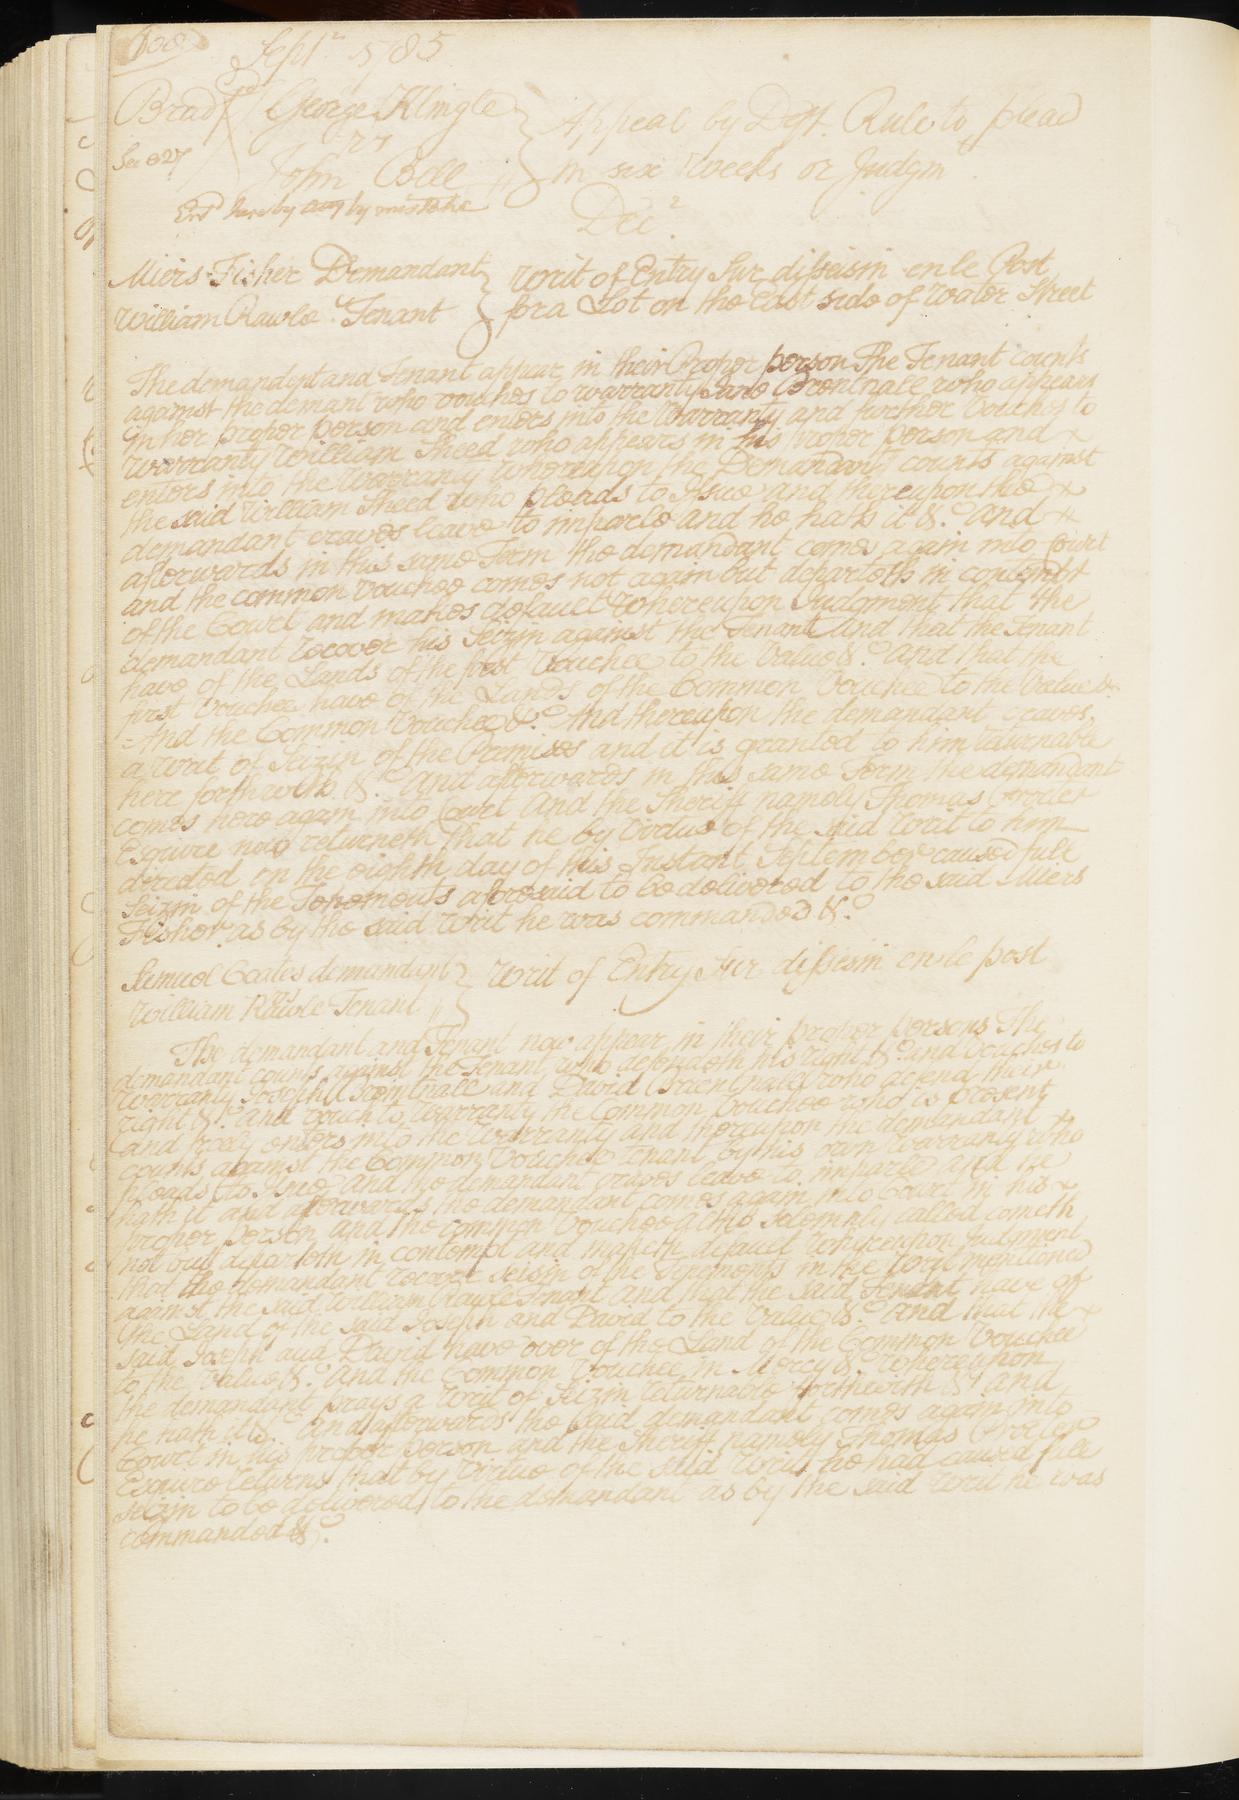 Sept.r 1785
Bradf.d George Klingle } Appeal by Deft. Rule to plead
See 827 vs
John Bell } in six Weeks or Judgm
Ent.d here by mistake
Dec.r
Miers Fisher Demandant } Writ of Entry Sur disseisin en le Post
William Rawle Tenant } for a Lot on the East side of Water Street
The demandant and Tenant appear in their Proper person The Tenant counts
against the demant who vouches to warranty Jane who appears
in her proper person and enters into the Warranty and further Vouches to
Warranty William Sheed who appears in his proper person and
enters into the Warranty Whereupon the Demandant counts against
the said William Sheed who pleads to Issue and thereupon the
demandant craves leave to imparle and he hath it &c. and
afterwards in this same Term the demandant comes again into Court
and the common vouchee comes not again but departeth in contempt
of the Court and makes default Whereupon Judgment that the
demandant recover his Seizin against the Tenant And that the Tenant
have of the Lands of the first Vouchee to the Value &c. And that the
first Vouchee have of the Lands of the Common Vouchee to the Value &c.
And the Common Vouchee &c. And thereupon the demandant craves
a Writ of Seizin of the Premises and it is granted to him returnable
here forthwith &c. And afterwards in this same Term the demandant
comes here again into Court and the Sheriff namely Thomas Procter
Esquire now returneth that he by Virtue of the said Writ to him
directed on the eighth day of this Instant September caused full
Seizin of the Tenements aforesaid to be delivered to the said Miers
Fisher as by the said Writ he was commanded &c.
Samuel Coates demandant } Writ of Entry Sur disseisin en le post
William Rawle Tenant }
The demandant and Tenant now appear in their proper persons The
demandant counts against the Tenant who defendeth his right &c and Vouches to
Warranty Joseph and David who defend their
right &c. and vouch to Warranty the Common Vouchee who is present
and freely enters into the Warranty and thereupon the demandant
counts against the Common Vouchee Tenant by his own Warranty who
pleads to Issue and the demandant craves leave to imparle and he
hath it and afterwards the demandant comes again into Court in his
proper person and the common Vouchee altho solemnly called cometh
not but departeth in contempt and maketh default Whereupon Judgment
that the demandant recover seisin of the Tenements in the Writ mentioned
against the said William Rawle Tenant and that the said Tenant have of
the Land of the said Joseph and David to the Value &c. And that the
said Joseph and David have over of the Land of the Common Vouchee
to the Value &c. And the Common Vouchee in Mercy &c. Whereupon
the demandant prays a Writ of Seizin returnable forthwith &c and
he hath it &c. And afterwards the said demandant comes again into
Court in his proper person and the Sheriff namely Thomas Procter
Esquire returns that by Virtue of the said Writ he had caused full
seizin to be delivered to the demandant as by the said Writ he was
commanded &c.